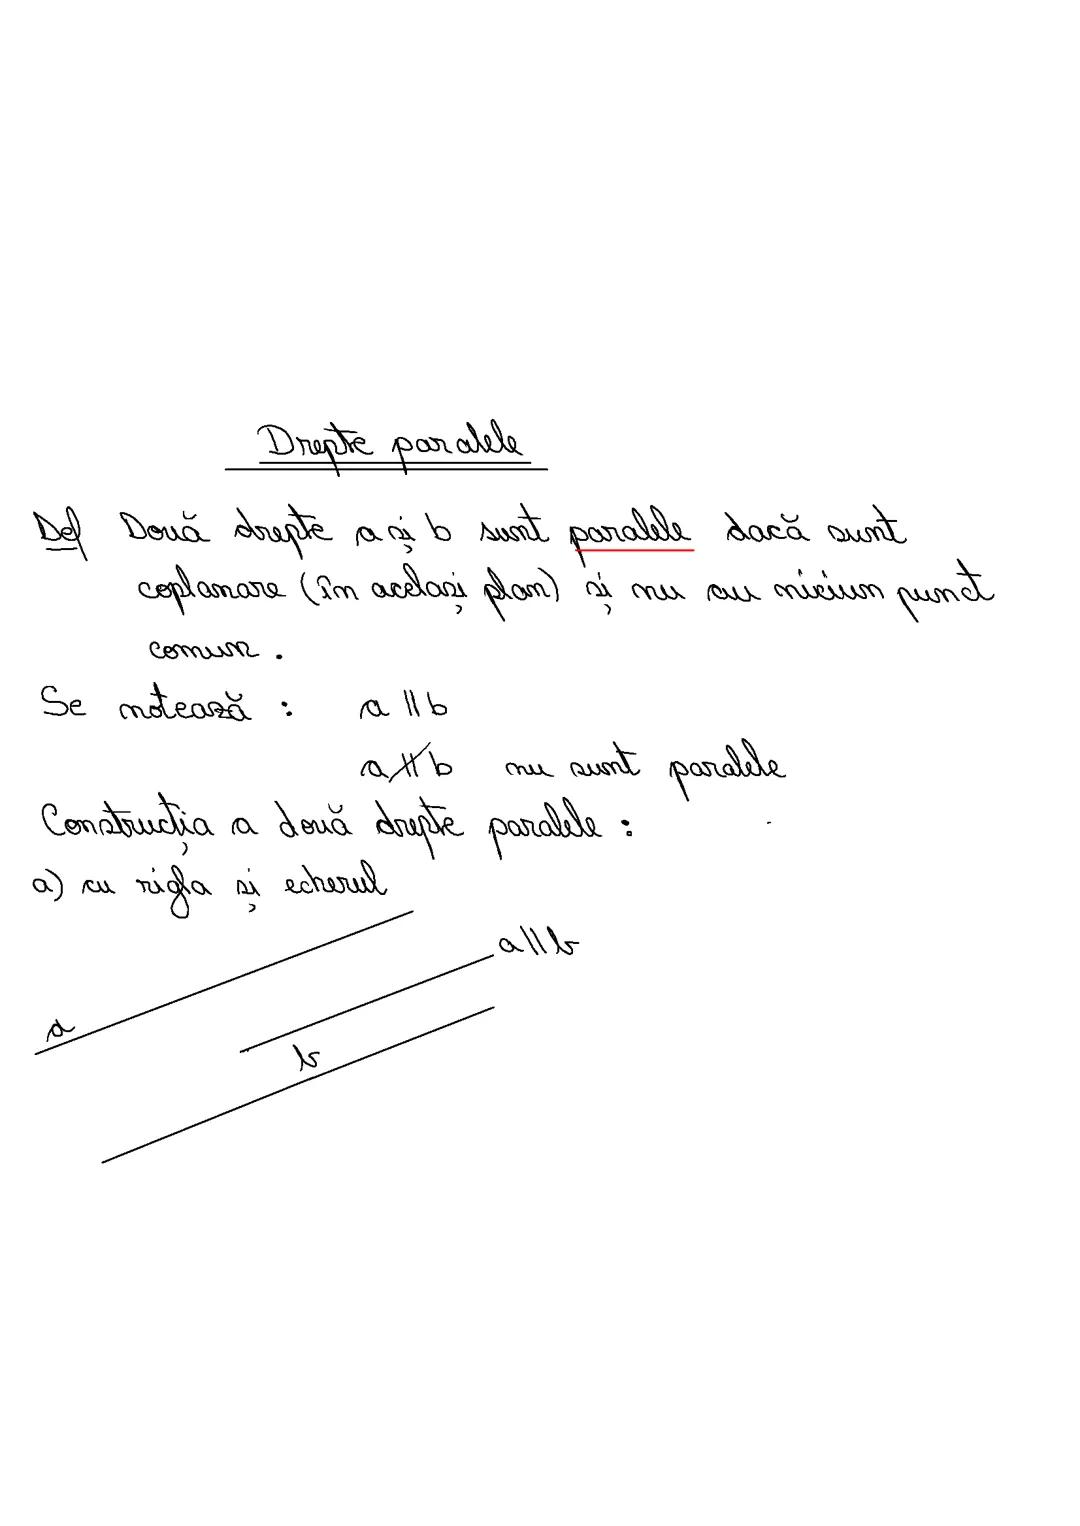 Drepte paralele
Def Două drepte a și b sunt paralele dacă sunt
coplanare (în același plan) și nu au niciun punct
comun.
Se notează : a || b
a ∦ b nu sunt paralele
Construcția a două drepte paralele :
a) cu rigla și echerul
a || b
a
b